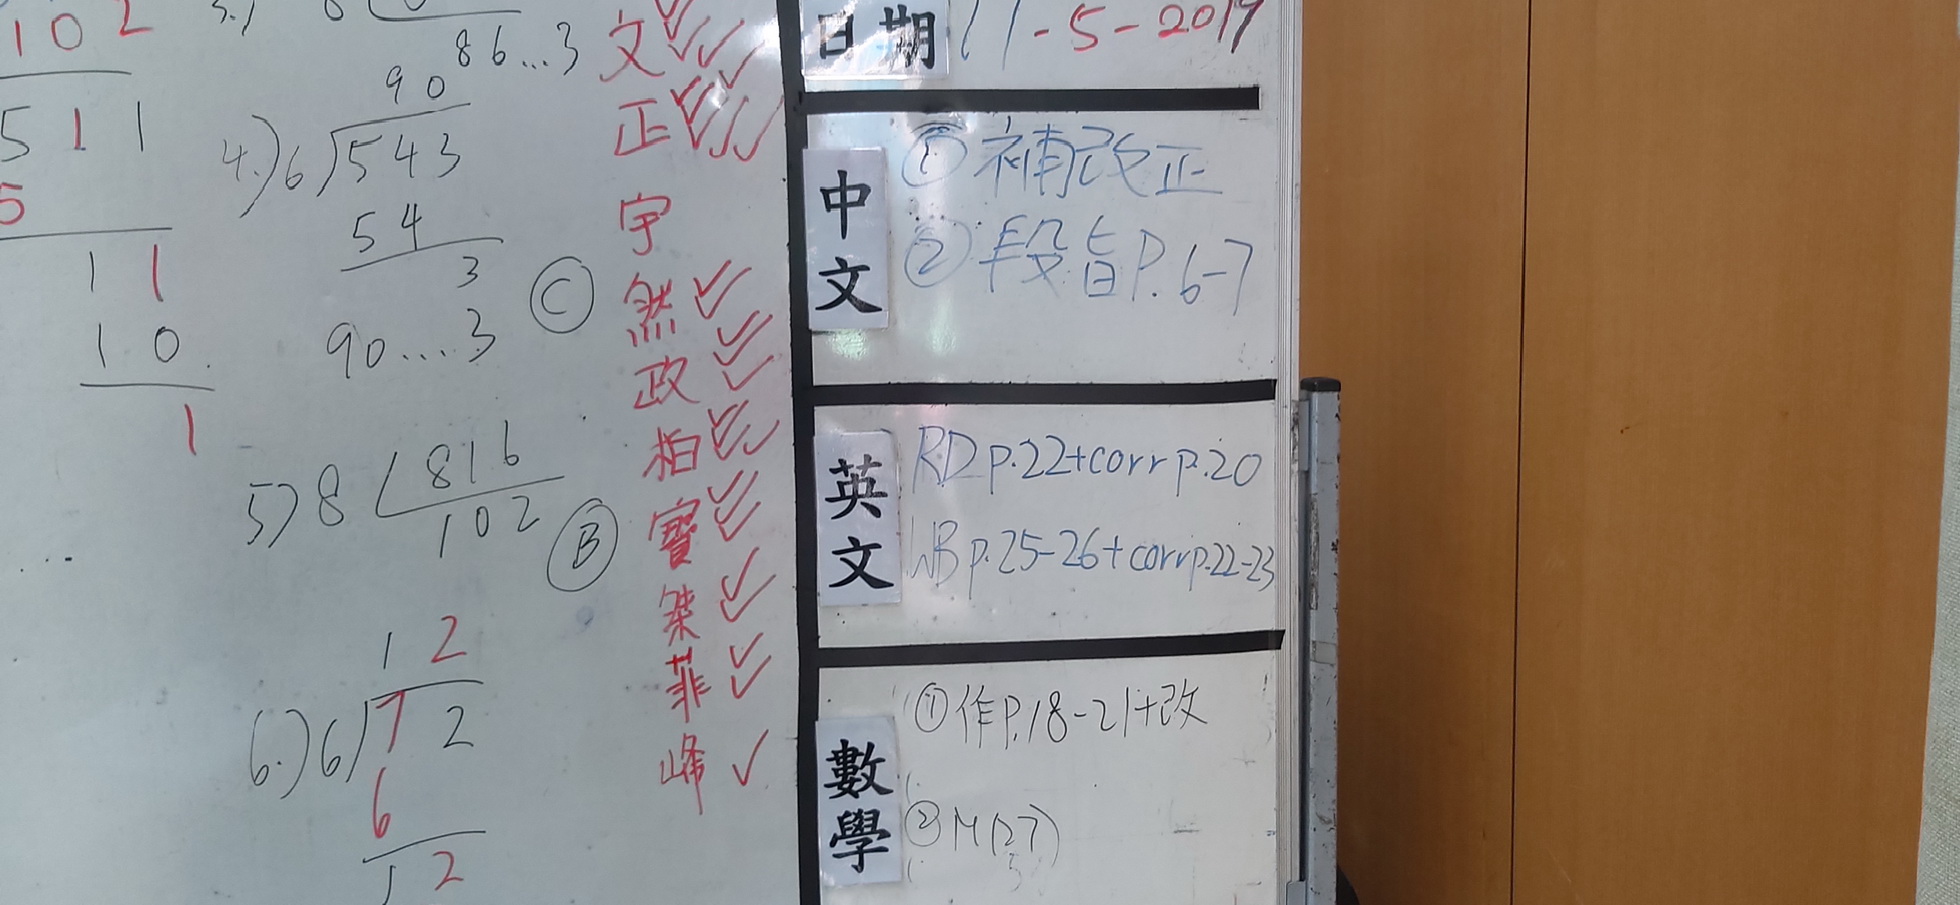 102
511
5
11
10
1
...
86...3
90
4.) 6 543
54
3
90....3
C
5) 8 816
102
B
12
6.) 6 72
6
12
文
正
宇
然
政
柏
寶
桀
菲
峰
日期 11-5-2019
中文
①補改正
②段旨P.6-7
英文
RD p.22+corr p.20
WB p.25-26+corr p.22-23
數學
①作P.18-21+改
②M(27)